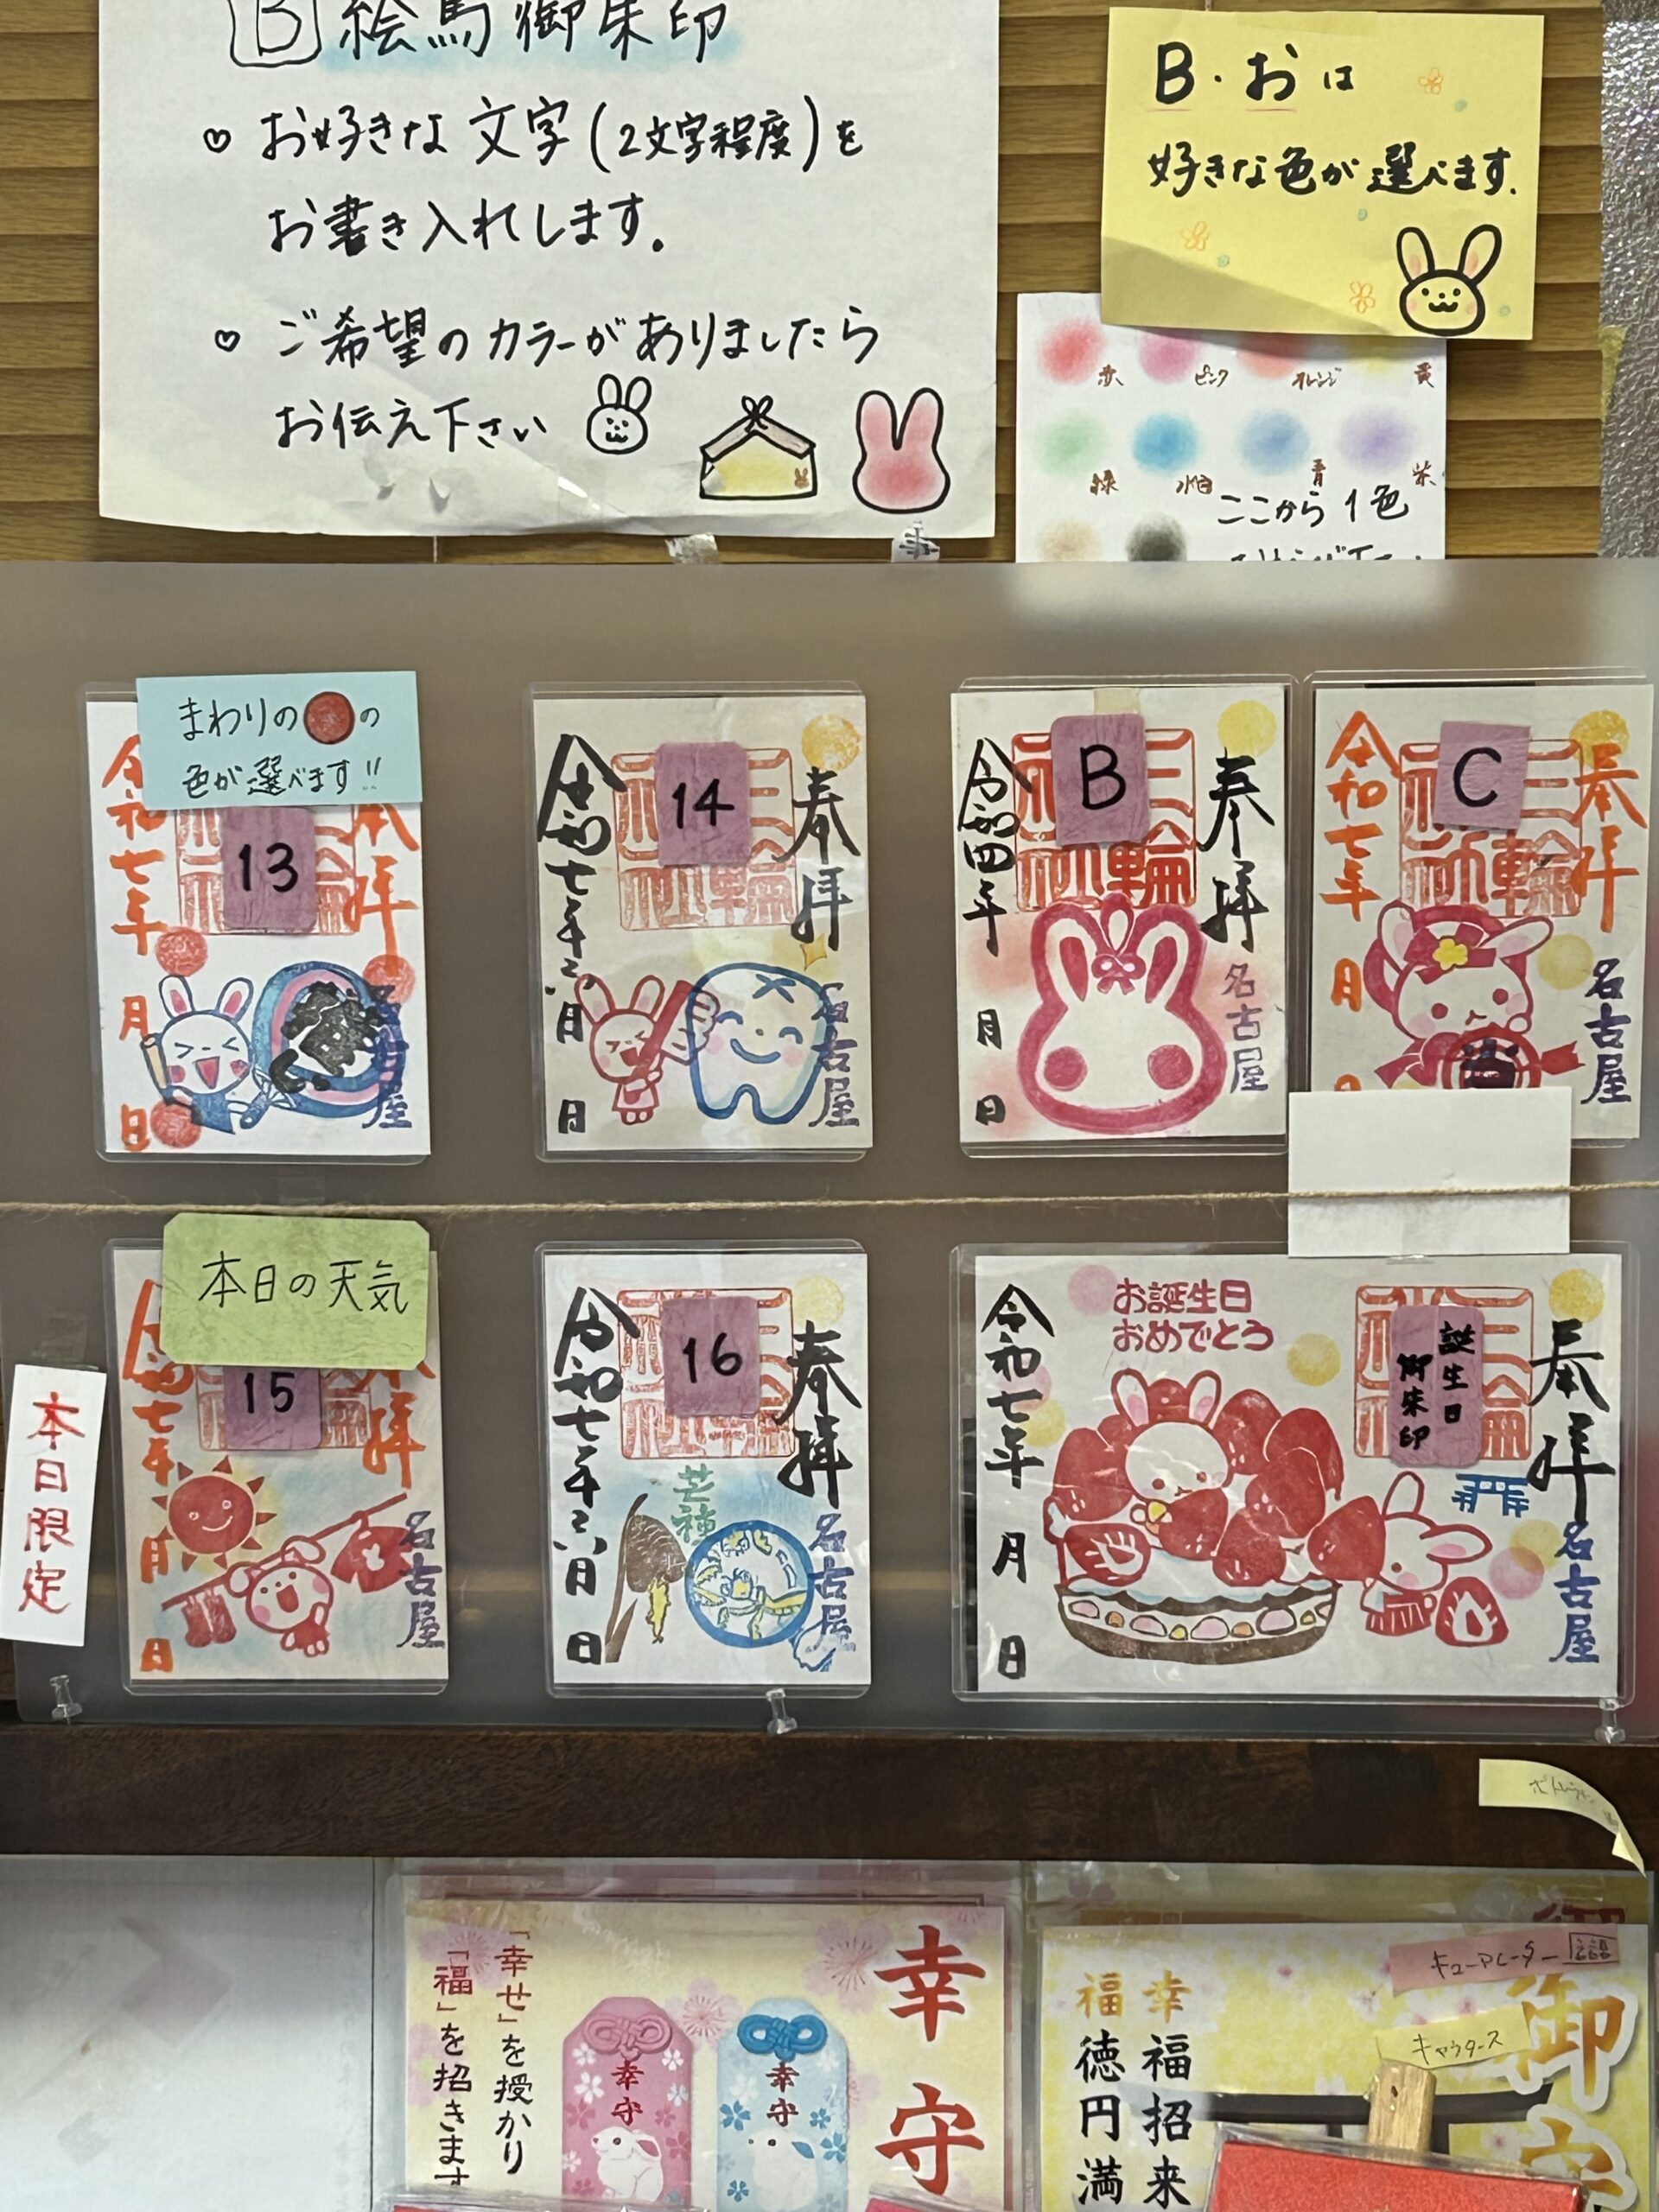 B 絵馬御朱印
♡ お好きな文字(2文字程度)を
お書き入れします。
♡ ご希望のカラーがありましたら
お伝え下さい
B・おは
好きな色が選べます.
赤 ピンク オレンジ 黄
緑 水色 青 紫
ここから1色
まわりの●の
色が選べます!!
13
奉拝
令和七年
月
日
名古屋
14
奉拝
三輪
令和七年六月
日
名古屋
B
奉拝
三輪
令和四年
月
日
名古屋
C
奉拝
三輪神
令和七年
月
名古屋
本日限定
本日の天気
15
令和七年
月
日
名古屋
16
奉拝
令和七年六月
日
芒種
名古屋
お誕生日
おめでとう
誕生日
御朱印
奉拝
令和七年
月
日
名古屋
幸守
「幸せ」を授かり
「福」を招きます
幸守
幸守
キューアレーター
キャラタース
御守
幸福招来
福徳円満